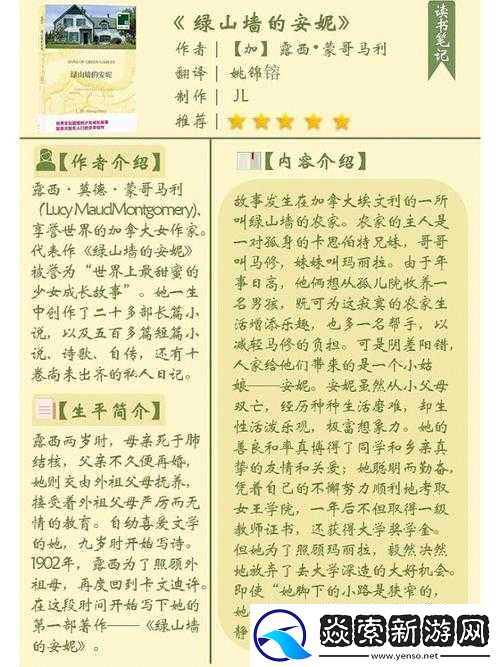 《绿山墙的安妮》
作者 | 【加】露西·蒙哥马利
翻译 | 姚锦镕
制作 | JL
推荐
读书笔记
ANNE OF GREEN GABLES
绿山墙的安妮
【作者介绍】
露西·莫德·蒙哥马利
(Lucy Maud Montgomery),
享誉世界的加拿大女作家。
代表作《绿山墙的安妮》
被誉为“世界上最甜蜜的
少女成长故事”。她一生
中创作了二十多部长篇小
说，以及五百多篇短篇小
说、诗歌、自传，还有十
卷尚未出齐的私人日记。
【生平简介】
露西两岁时，母亲死于肺
结核，父亲不久便再婚，
她则交由外祖父母抚养，
接受着外祖父母严厉而无
情的教育。自幼喜爱文学
的她，九岁时开始写诗。
1902年，露西为了照顾外
祖母，再度回到卡文迪许。
在这段时间开始写下她的
第一部著作——《绿山墙
的安妮》。
【内容介绍】
故事发生在加拿大埃文利的一所
叫绿山墙的农家。农家的主人是
一对孤身的卡思伯特兄妹，哥哥
叫马修，妹妹叫玛丽拉。由于年
事日高，他俩想从孤儿院收养一
名男孩，既可为这寂寞的农家生
活增添乐趣，也多一名帮手，以
减轻马修的负担。可是阴差阳错，
人家给他们带来的是一个小姑
娘——安妮。安妮虽然从小父母
双亡，经历种种生活磨难，却生
性活泼乐观，极富想象力。她的
善良和率真博得了同学和乡亲真
挚的友情和关爱；她聪明而勤奋，
凭着自己的不懈努力顺利地考取
女王学院，一年后不但取得一级
教师证书，还获得大学奖学金。
但她为了照顾玛丽拉，毅然决然
地放弃了去大学深造的大好机会。
即使“她脚下的小路是狭窄的，
她
静
焱索新游网
www.yenso.net